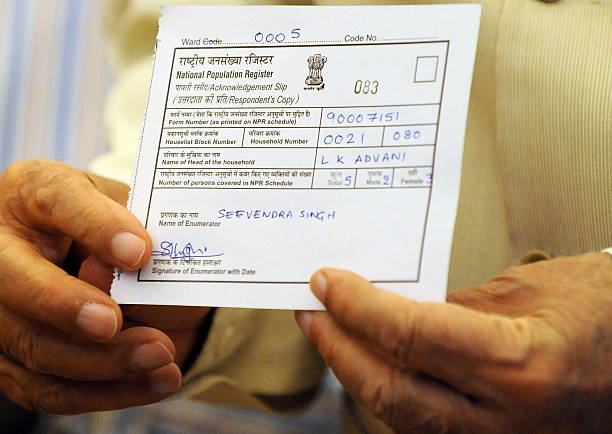 Ward Code 0005 Code No.
राष्ट्रीय जनसंख्या रजिस्टर
National Population Register
पावती रसीद/Acknowledgement Slip
(उत्तरदाता की प्रति/Respondent's Copy)
083
फार्म नम्बर (जैसा कि राष्ट्रीय जनसंख्या रजिस्टर अनुसूची पर मुद्रित है)
Form Number (as printed on NPR schedule) 90007151
मकानसूची ब्लॉक क्रमांक परिवार क्रमांक
Houselist Block Number Household Number 0021 080
परिवार के मुखिया का नाम
Name of Head of the household L K ADVANI
राष्ट्रीय जनसंख्या रजिस्टर अनुसूची में कवर किए गए व्यक्तियों की संख्या कुल पुरुष स्त्री
Number of persons covered in NPR Schedule Total 5 Male 2 Female 3
प्रगणक का नाम SEEVENDRA SINGH
Name of Enumerator
प्रगणक के दिनांकित हस्ताक्षर
Signature of Enumerator with Date